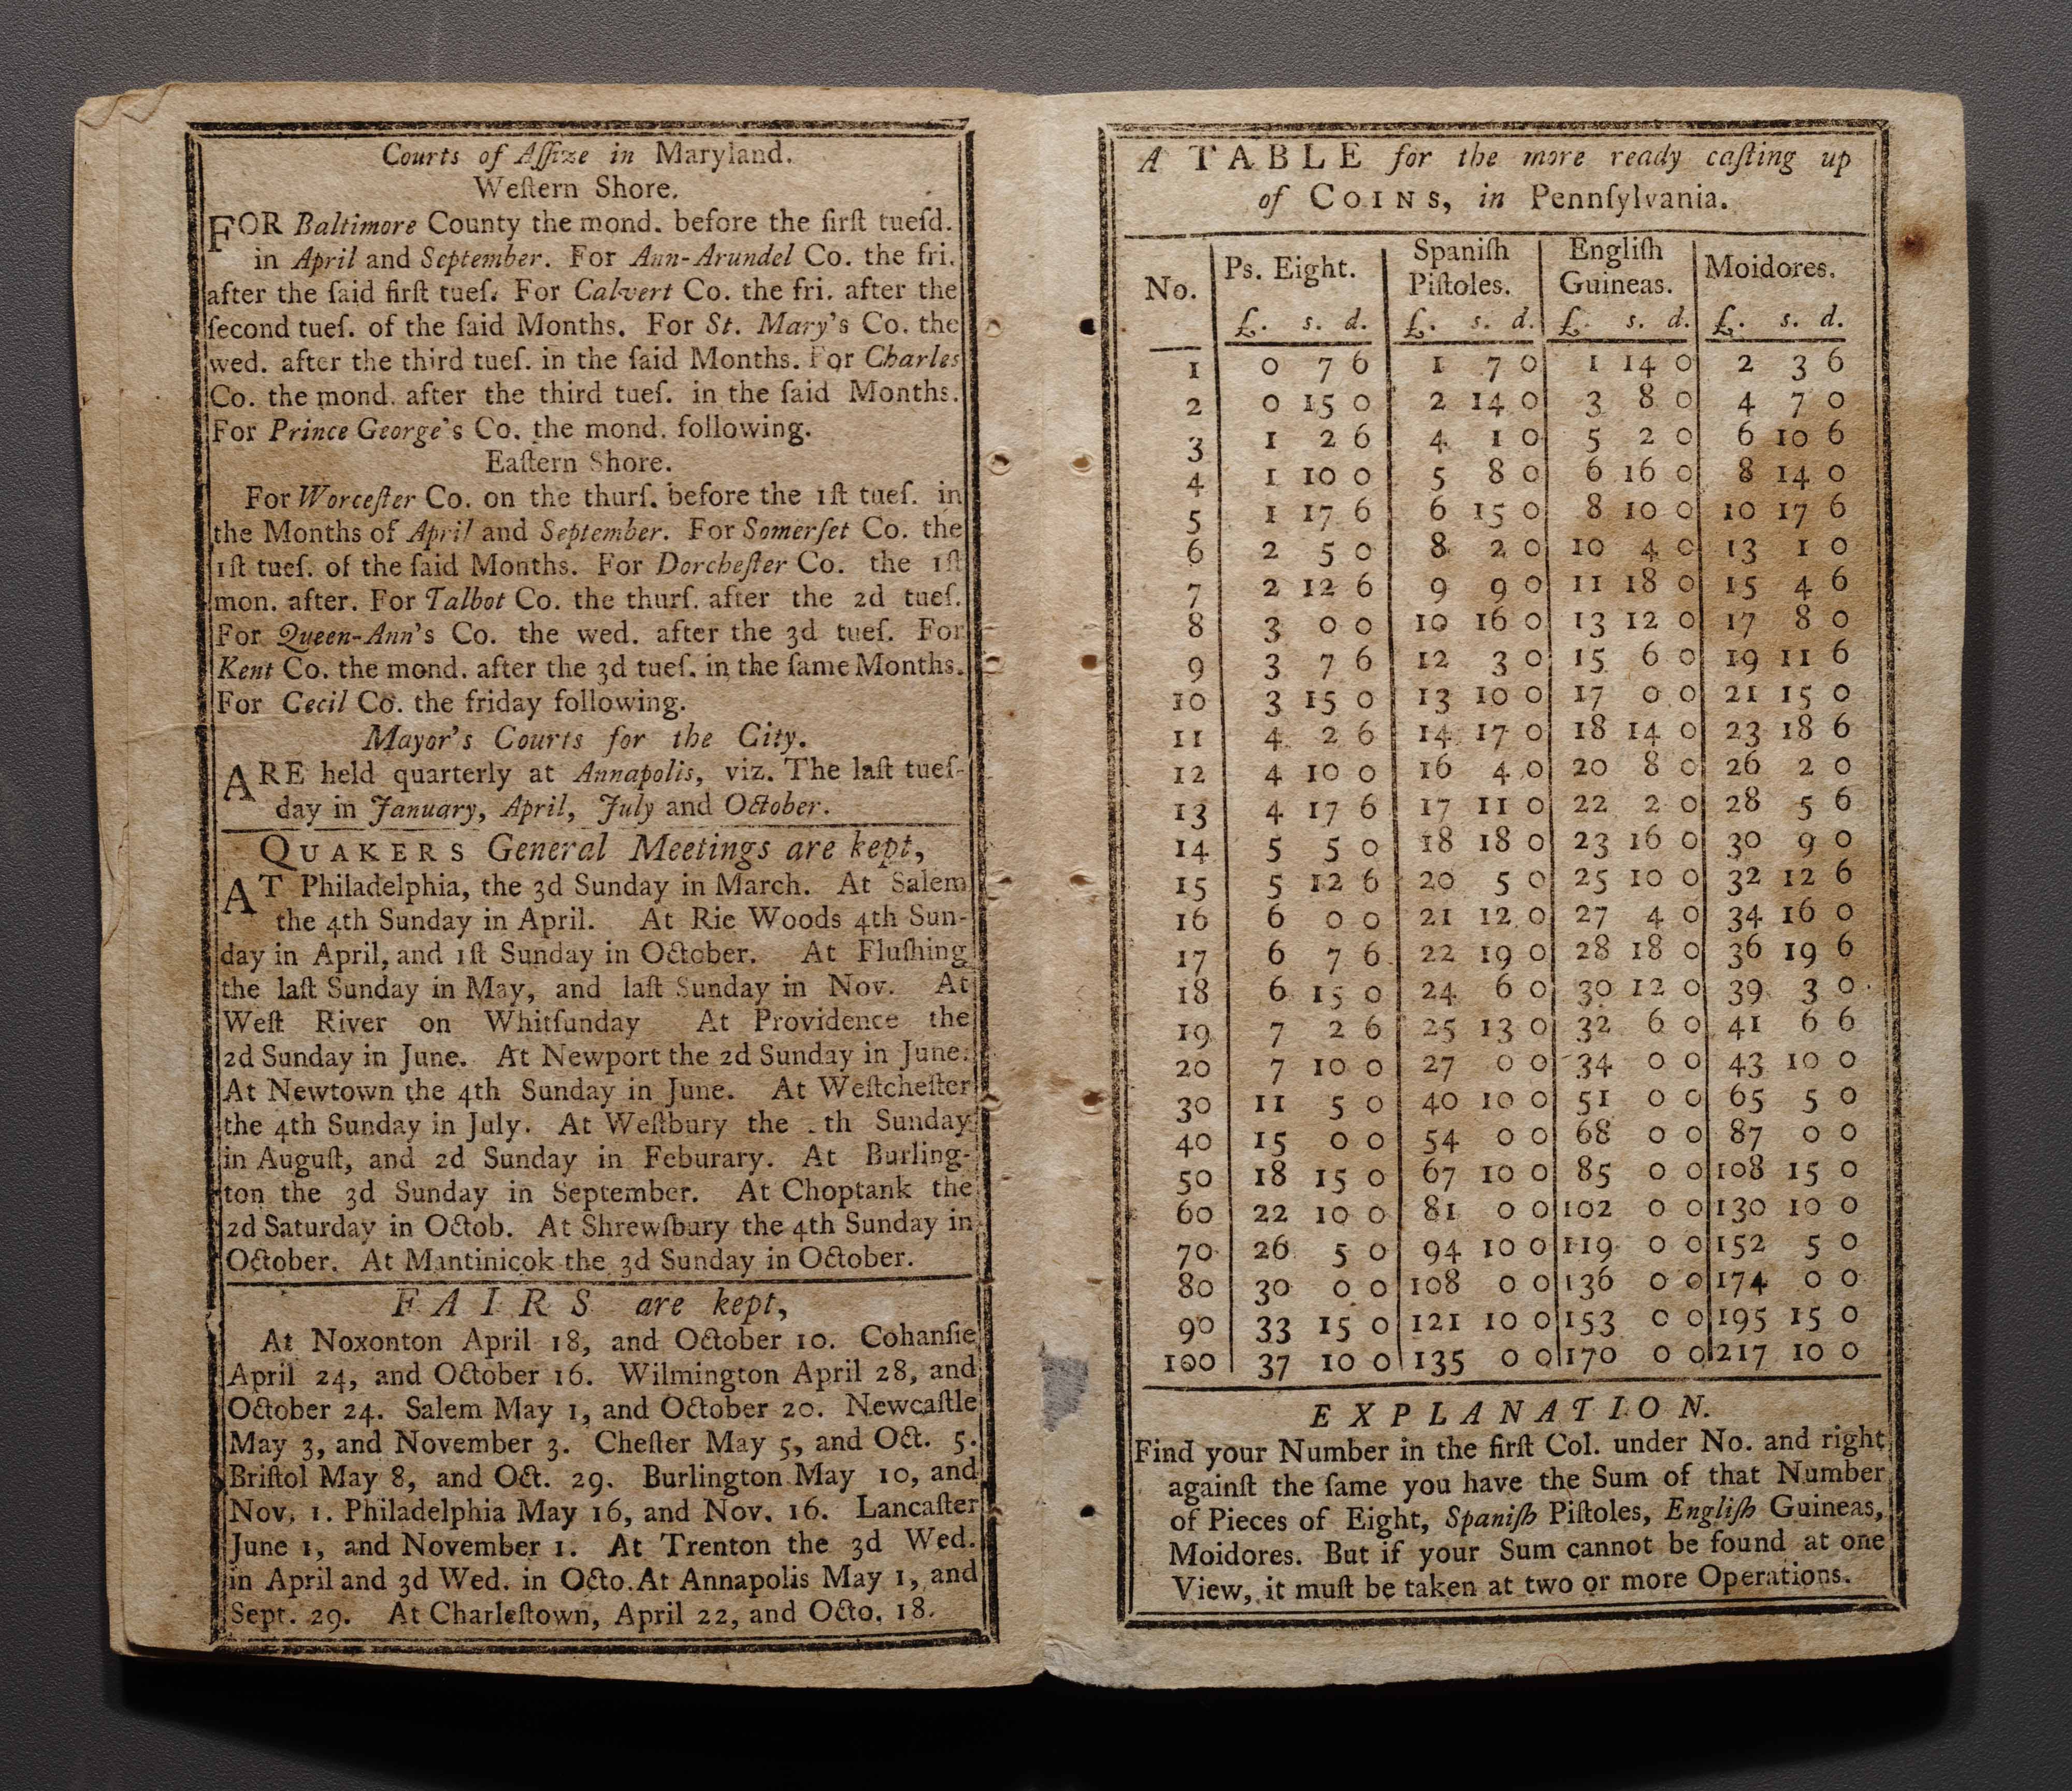 Courts of Aſſize in Maryland.
Weſtern Shore.
FOR Baltimore County the mond. before the firſt tueſd.
in April and September. For Ann-Arundel Co. the fri.
after the ſaid firſt tueſ. For Calvert Co. the fri. after the
ſecond tueſ. of the ſaid Months. For St. Mary's Co. the
wed. after the third tueſ. in the ſaid Months. For Charles
Co. the mond. after the third tueſ. in the ſaid Months.
For Prince George's Co. the mond. following.
Eaſtern Shore.
For Worceſter Co. on the thurſ. before the 1ſt tueſ. in
the Months of April and September. For Somerſet Co. the
1ſt tueſ. of the ſaid Months. For Dorcheſter Co. the 1ſt
mon. after. For Talbot Co. the thurſ. after the 2d tueſ.
For Queen-Ann's Co. the wed. after the 3d tueſ. For
Kent Co. the mond. after the 3d tueſ. in the ſame Months.
For Cecil Co. the friday following.
Mayor's Courts for the City.
ARE held quarterly at Annapolis, viz. The laſt tueſ-
day in January, April, July and October.
QUAKERS General Meetings are kept,
AT Philadelphia, the 3d Sunday in March. At Salem
the 4th Sunday in April. At Rie Woods 4th Sun-
day in April, and 1ſt Sunday in October. At Fluſhing
the laſt Sunday in May, and laſt Sunday in Nov. At
Weſt River on Whitſunday At Providence the
2d Sunday in June. At Newport the 2d Sunday in June.
At Newtown the 4th Sunday in June. At Weſtcheſter
the 4th Sunday in July. At Weſtbury the th Sunday
in Auguſt, and 2d Sunday in Feburary. At Burling-
ton the 3d Sunday in September. At Choptank the
2d Saturday in Octob. At Shrewſbury the 4th Sunday in
October. At Mantinicok the 3d Sunday in October.
FAIRS are kept,
At Noxonton April 18, and October 10. Cohanſie
April 24, and October 16. Wilmington April 28, and
October 24. Salem May 1, and October 20. Newcaſtle
May 3, and November 3. Cheſter May 5, and Oct. 5.
Briſtol May 8, and Oct. 29. Burlington May 10, and
Nov. 1. Philadelphia May 16, and Nov. 16. Lancaſter
June 1, and November 1. At Trenton the 3d Wed.
in April and 3d Wed. in Octo. At Annapolis May 1, and
Sept. 29. At Charleſtown, April 22, and Octo. 18.
A TABLE for the more ready caſting up
of COINS, in Pennſylvania.
No. Ps. Eight. Spaniſh Piſtoles. Engliſh Guineas. Moidores.
£. s. d. £. s. d. £. s. d. £. s. d.
1 0 7 6 1 7 0 1 14 0 2 3 6
2 0 15 0 2 14 0 3 8 0 4 7 0
3 1 2 6 4 1 0 5 2 0 6 10 6
4 1 10 0 5 8 0 6 16 0 8 14 0
5 1 17 6 6 15 0 8 10 0 10 17 6
6 2 5 0 8 2 0 10 4 0 13 1 0
7 2 12 6 9 9 0 11 18 0 15 4 6
8 3 0 0 10 16 0 13 12 0 17 8 0
9 3 7 6 12 3 0 15 6 0 19 11 6
10 3 15 0 13 10 0 17 0 0 21 15 0
11 4 2 6 14 17 0 18 14 0 23 18 6
12 4 10 0 16 4 0 20 8 0 26 2 0
13 4 17 6 17 11 0 22 2 0 28 5 6
14 5 5 0 18 18 0 23 16 0 30 9 0
15 5 12 6 20 5 0 25 10 0 32 12 6
16 6 0 0 21 12 0 27 4 0 34 16 0
17 6 7 6 22 19 0 28 18 0 36 19 6
18 6 15 0 24 6 0 30 12 0 39 3 0
19 7 2 6 25 13 0 32 6 0 41 6 6
20 7 10 0 27 0 0 34 0 0 43 10 0
30 11 5 0 40 10 0 51 0 0 65 5 0
40 15 0 0 54 0 0 68 0 0 87 0 0
50 18 15 0 67 10 0 85 0 0 108 15 0
60 22 10 0 81 0 0 102 0 0 130 10 0
70 26 5 0 94 10 0 119 0 0 152 5 0
80 30 0 0 108 0 0 136 0 0 174 0 0
90 33 15 0 121 10 0 153 0 0 195 15 0
100 37 10 0 135 0 0 170 0 0 217 10 0
EXPLANATION.
Find your Number in the firſt Col. under No. and right
againſt the ſame you have the Sum of that Number
of Pieces of Eight, Spaniſh Piſtoles, Engliſh Guineas,
Moidores. But if your Sum cannot be found at one
View, it muſt be taken at two or more Operations.